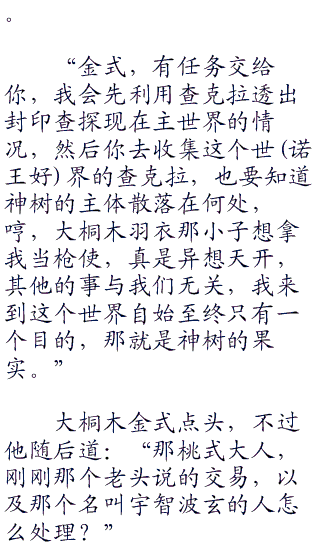 。
“金式，有任务交给
你，我会先利用查克拉透出
封印查探现在主世界的情
况，然后你去收集这个世(诺
王好)界的查克拉，也要知道
神树的主体散落在何处，
哼，大桐木羽衣那小子想拿
我当枪使，真是异想天开，
其他的事与我们无关，我来
到这个世界自始至终只有一
个目的，那就是神树的果
实。”
大桐木金式点头，不过
他随后道：“那桃式大人，
刚刚那个老头说的交易，以
及那个名叫宇智波玄的人怎
么处理？”